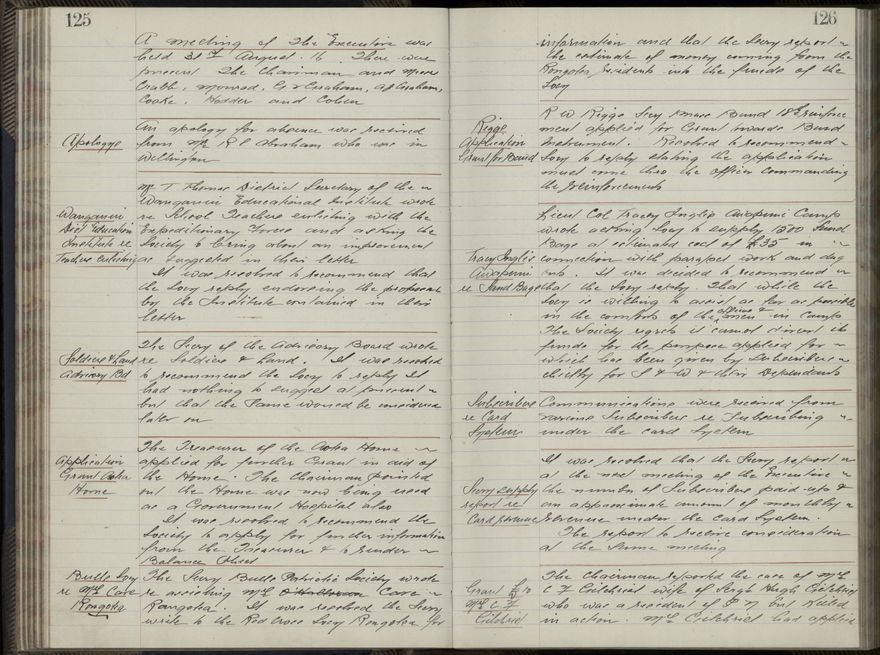 125
A meeting of the Executive was
held 31st August. 16. There were
present The Chairman and Messrs
Crabb, Monrad, G V Graham, A J Graham,
Cooke, Hodder and Cohen
Apology
An apology for absence was received
from Mr R E Abraham who was in
Wellington
Wanganui
Dist Education
Institute re
Teachers enlisting
Mr T Thomas District Secretary of the
Wanganui Educational Institute wrote
re School Teachers enlisting with the
Expeditionary Force and asking the
Society to bring about an improvement
as suggested in their letter
It was resolved to recommend that
the Secy reply endorsing the proposals
by the Institute contained in their
letter
Soldiers & Land
Advisory Bd
The Secy of the Advisory Board wrote
re Soldiers & Land. It was resolved
to recommend the Secy to reply It
had nothing to suggest at present
but that the same would be considered
later on
Application
Grant Aotea
Home
The Treasurer of the Aotea Home
applied for further Grant in aid of
the Home. The Chairman pointed
out the Home was now being used
as a Government Hospital also
It was resolved to recommend the
Society to apply for further information
from the Treasurer & to render
Balance Sheet
Bulls Secy
re Mrs Care
Rongotea
The Secy Bulls Patriotic Society wrote
re assisting Mrs Care
Rongotea. It was resolved the Secy
write to the Red Cross Secy Rongotea for
126
information and that the Secy report
the estimate of money coming from the
Rongotea residents into the funds of the
Secy
Riggs
Application
Grant for Band
R W Riggs Secy Brass Band 18th reinforce
ment applied for Grant towards Band
Instrument. Resolved to recommend
Secy to reply stating the application
must come thro the Officer Commanding
the Reinforcements
Tracy Inglis
Awapuni
re Sand Bags
Lieut Col Tracy Inglis Awapuni Camp
wrote asking Secy to supply 1500 Sand
Bags at estimated cost of £35 in
connection with parapet work and dug
outs. It was decided to recommend
that the Secy reply. That while the
Secy is willing to assist as far as possible
in the comforts of the officers & men in Camp
The Society regrets it cannot divert its
funds for the purpose applied for
which has been given by Subscribers
chiefly for S & W & their Dependants
Subscribers
re Card
System
Communications were received from
various Subscribers re Subscribing
under the card System
Secy supply
report re
Card revenue
It was resolved that the Secy report
at the next meeting of the Executive
the number of Subscribers paid up &
an approximate amount of monthly
revenue under the Card System.
The report to receive consideration
at the same meeting
Grant £10
Mrs C F
Gilchrist
The Chairman reported the case of Mrs
C F Gilchrist wife of Sergt Hugh Gilchrist
who was a resident of P N but killed
in action. Mrs Gilchrist had applied